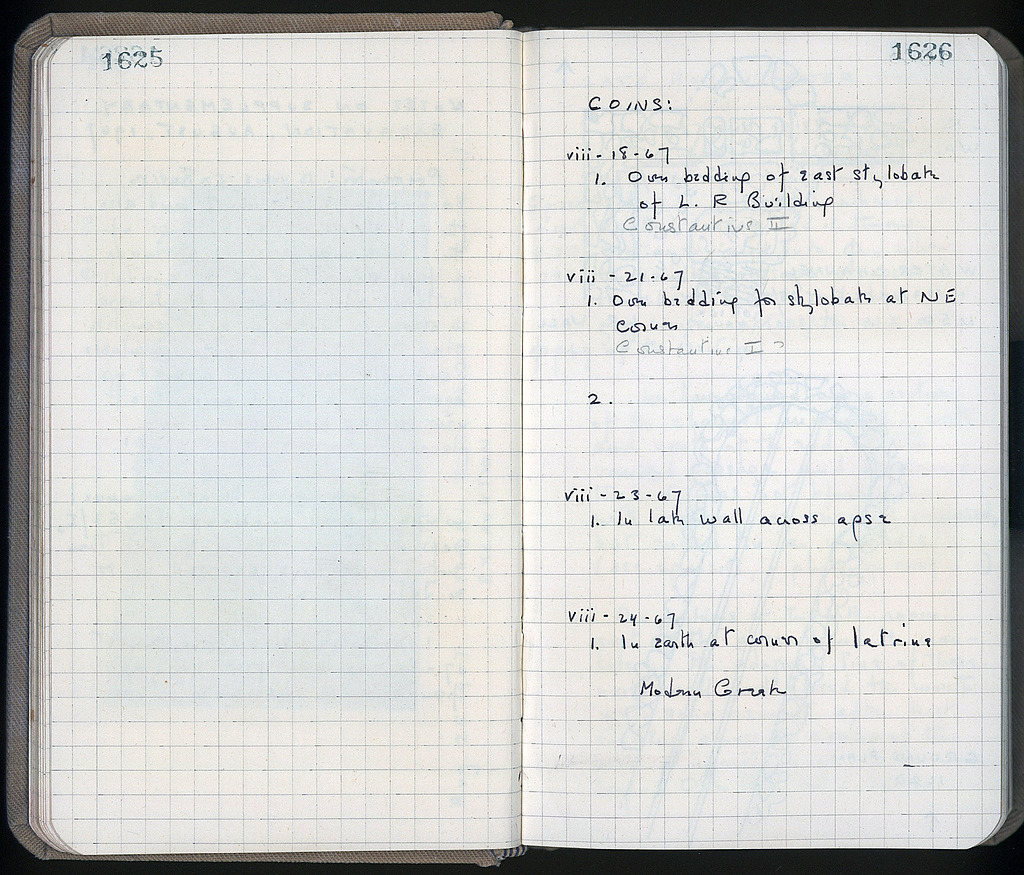 1625
1626
COINS:
viii - 18 - 67
1. Over bedding of east stylobate
of L. R Building
Constantius II
viii - 21 - 67
1. Over bedding for stylobate at NE
corner
Constantius I ?
2.
viii - 23 - 67
1. In late wall across apse
viii - 24 - 67
1. In earth at corner of latrine
Modern Greek